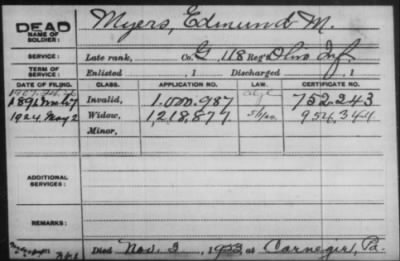 DEAD Myers, Edmund M.
NAME OF SOLDIER:
SERVICE: Late rank, Co. G, 118 Reg't Ohio Inf
TERM OF SERVICE: Enlisted , 1 Discharged , 1
DATE OF FILING. CLASS. APPLICATION NO. LAW. CERTIFICATE NO.
1891 Invalid, 1.000.987 752.243
1924 May 2 Widow, 1,218,877 954,344
Minor,
ADDITIONAL SERVICES:
REMARKS:
Died Nov. 3, 1923, at Carnegie, Pa.